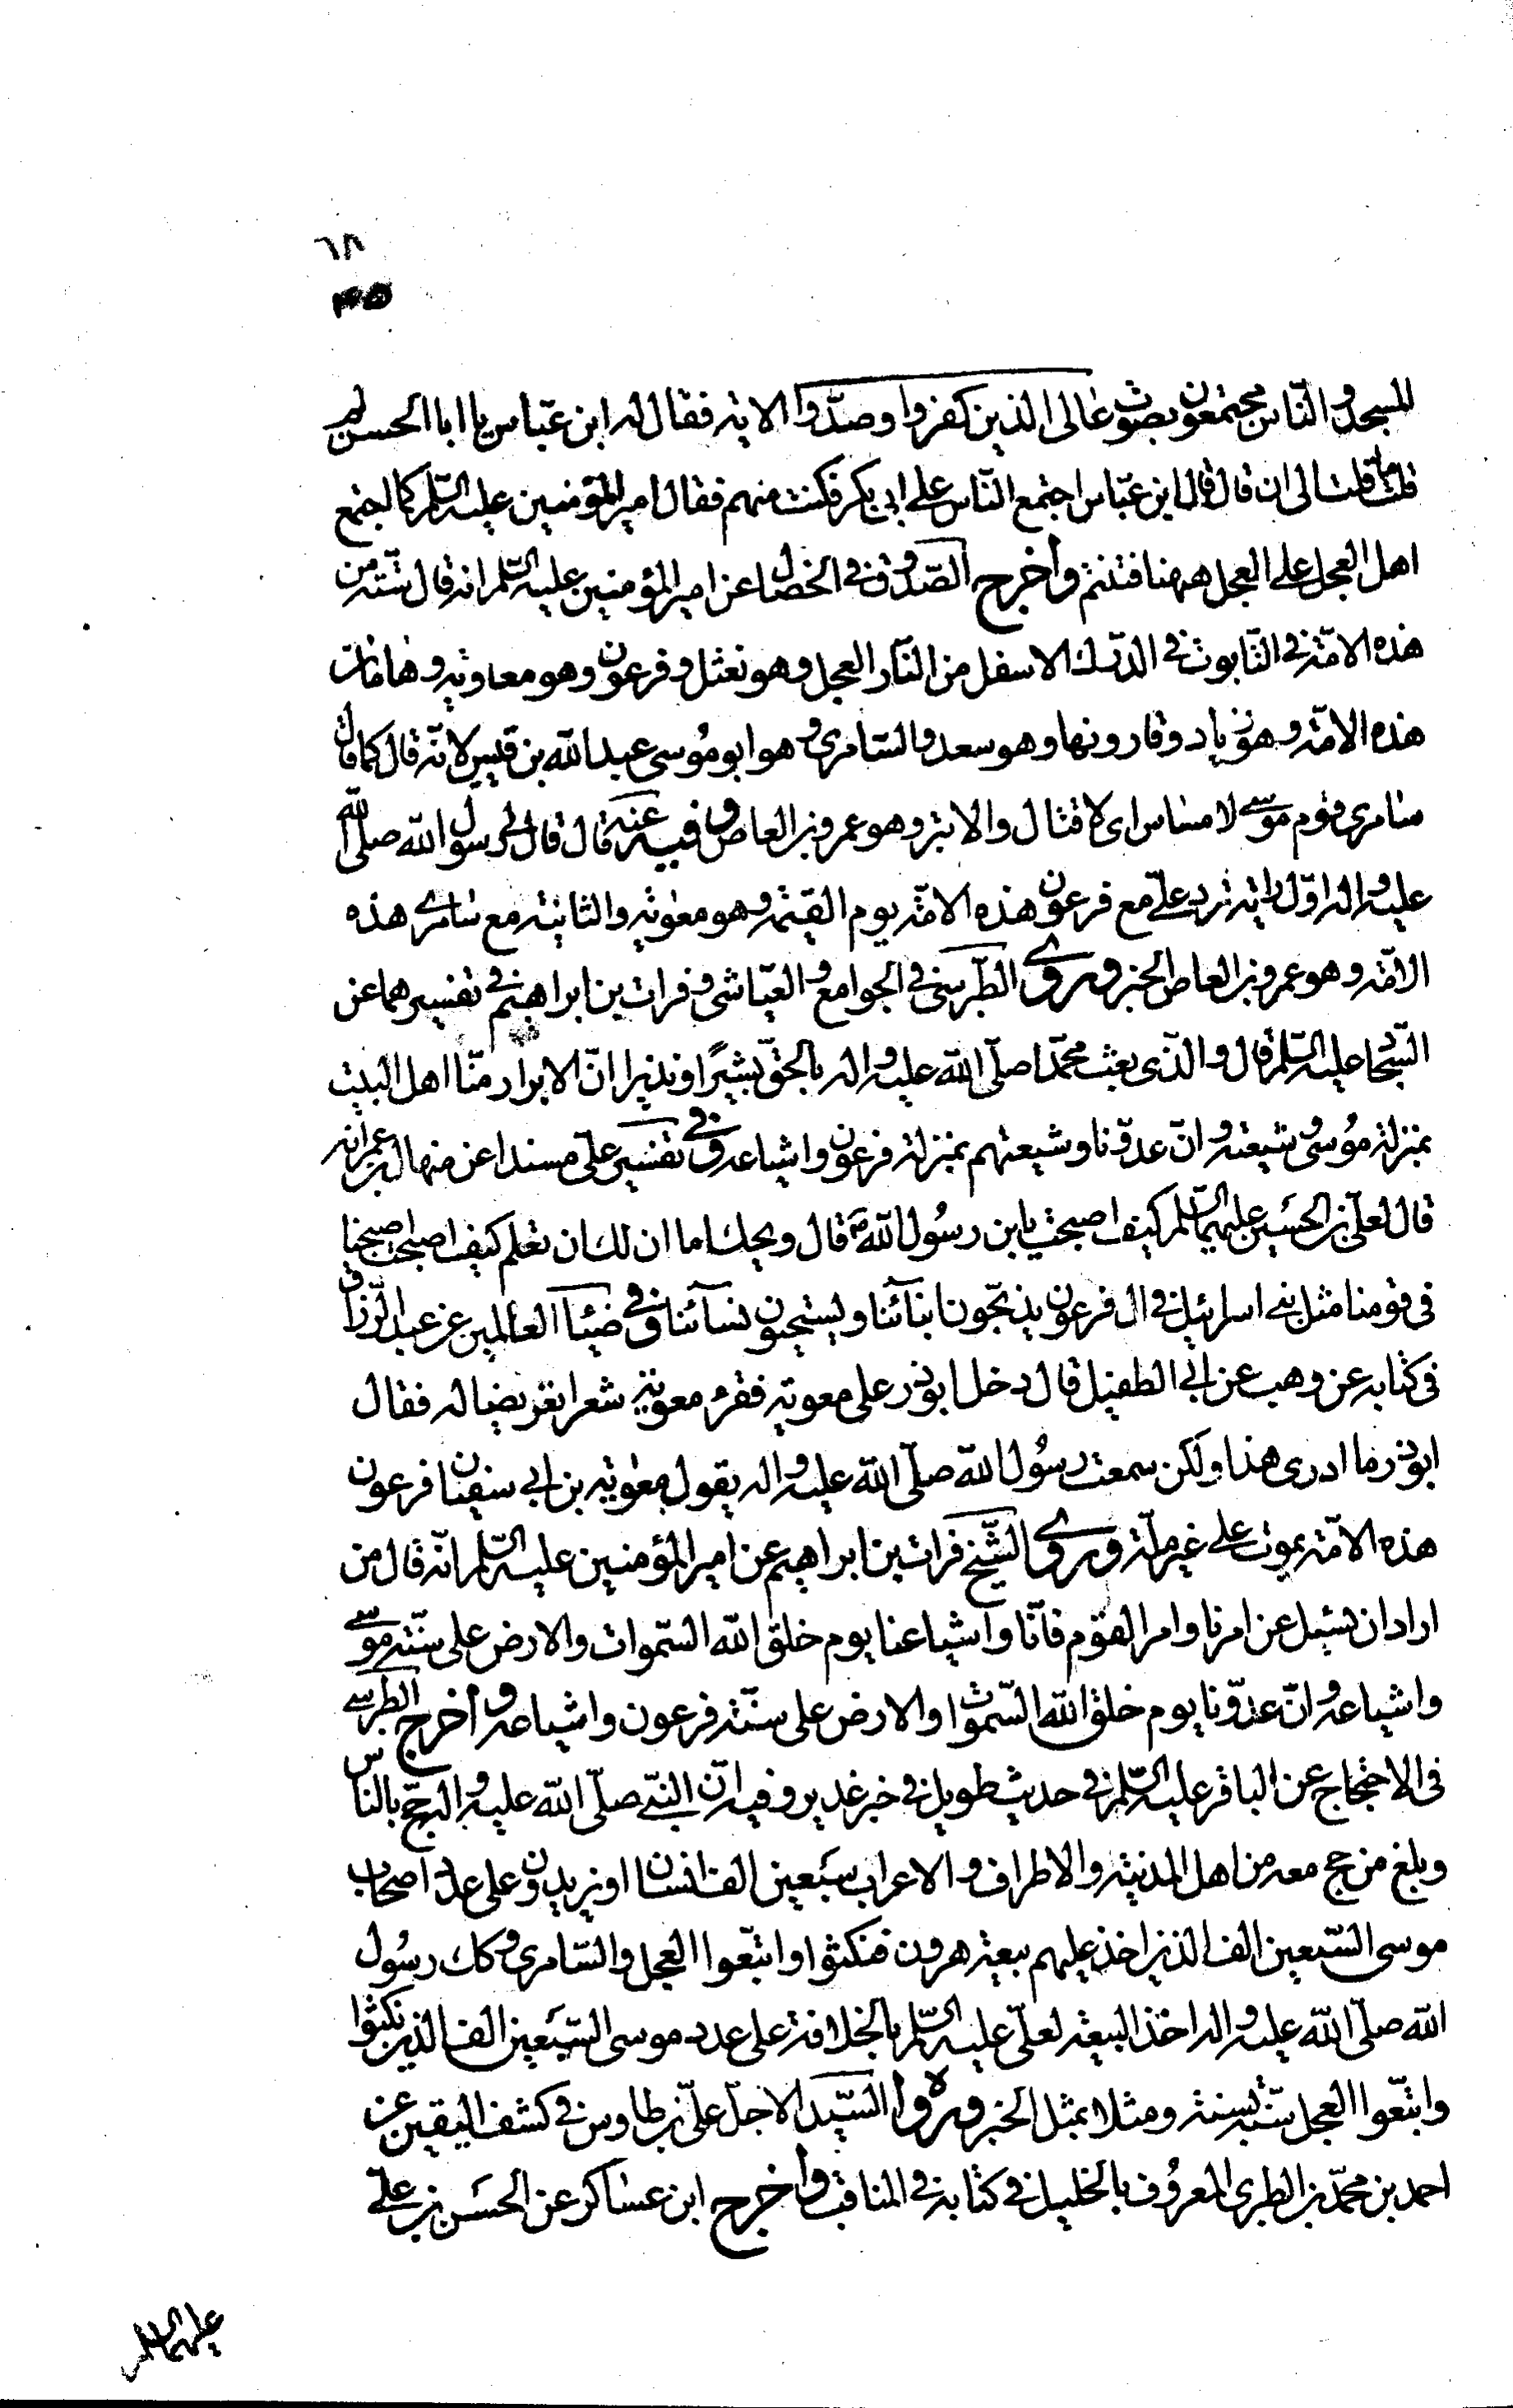 ٦٨
المسجد والناس مجتمعون بصوت عالى الذين كفروا وصدّوا الاية فقال له ابن عبّاس يا ابا الحسن لم
قلت ما قلت الى ان قال قال ابن عبّاس اجتمع النّاس على ابى بكر فكنت منهم فقال امير المؤمنين عليه السّلم كما اجتمع
اهل العجل على العجل ههنا فتنتم وأخرج الصّدوق فى الخصال عن امير المؤمنين عليه السّلم انه قال ستّة من
هذه الامّة فى التّابوت فى الدّرك الاسفل من النّار العجل وهو نعثل وفرعون وهو معاوية وهامان
هذه الامّة وهو زياد وقارونها وهو سعد والسّامرى وهو ابو مُوسى عبد الله بن قيس لانّه قال كما قال
سامرى قوم موسى لا مساس اى لا قتال والابتر وهو عمرو بن العاص وفيه عنه قال قال لى رسول الله صلى الله
عليه واله اوّل راية ترد علىّ مع فرعون هذه الامّة يوم القيمة وهو معوية والثانية مع سامرى هذه
الامّة وهو عمرو بن العاص الخبر وروى الطّبرسى فى الجوامع والعيّاشى وفرات بن ابراهيم فى تفسيرهما عن
السّجاد عليه السّلم قال والّذى بعث محمّدا صلّى الله عليه واله بالحقّ بشيرًا ونذيرا انّ الابرار منّا اهل البيت
بمنزلة مُوسى وشيعته وانّ عدوّنا وشيعتهم بمنزلة فرعون واشياعه وفى تفسير علىّ مسندا عن منهال بن عمر انه
قال لعلىّ بن الحسَين عليهما السّلم كيف اصبحت يابن رسُول الله قال ويحك اما ان لك ان تعلم كيف اصبحت اصبحنا
فى قومنا مثل بنى اسرائيل فى ال فرعون يذبّحون ابنائنا ويستحيون نسائنا وفى ضيئا العالمين عن عبد الرّزاق
فى كتابه عن وهب عن ابى الطفيل قال دخل ابوذر على معوية فقرء معوية شعرا تعريضا له فقال
ابوذر ما ادرى هذا ولكن سمعت رسُول الله صلّى الله عليه واله يقول معوية بن ابى سفين فرعون
هذه الامّة يموت على غير ملّة وروى الشّيخ فرات بن ابراهيم عن امير المؤمنين عليه السّلم انّه قال من
اراد ان يسئل عن امرنا وامر القوم فانّا واشياعنا يوم خلق الله السّموات والارض على سنّة موسى
واشياعه وانّ عدوّنا يوم خلق الله السّموات والارض على سنّة فرعون واشياعه وأخرج الطبرسى
فى الاحتجاج عن الباقر عليه السّلم فى حديث طويل فى خبر غدير وفيه انّ النبىّ صلّى الله عليه واله حجّ بالناس
وبلغ من حج معه من اهل المدينة والاطراف والاعراب سَبعين الف انسان او يزيدون على عدد اصحاب
موسى السّبعين الف الذين اخذ عليهم بيعة هرون فنكثوا واتبّعوا العجل والسّامرى وكك رسُول
الله صلّى الله عليه واله اخذ البيعة لعلىّ عليه السّلم بالخلافة على عدد موسى السّبَعين الف الذين نكثوا
واتبّعوا العجل سنّة بسنة ومثلا بمثل الخبر ورواه السّيّد الاجلّ علىّ بن طاوس فى كشف اليقين عن
احمد بن محمّد بن الطبرى المعرُوف بالخليل فى كتابه فى المناقب وأخرج ابن عساكر عن الحسَن بن علىّ
عليهما السلم